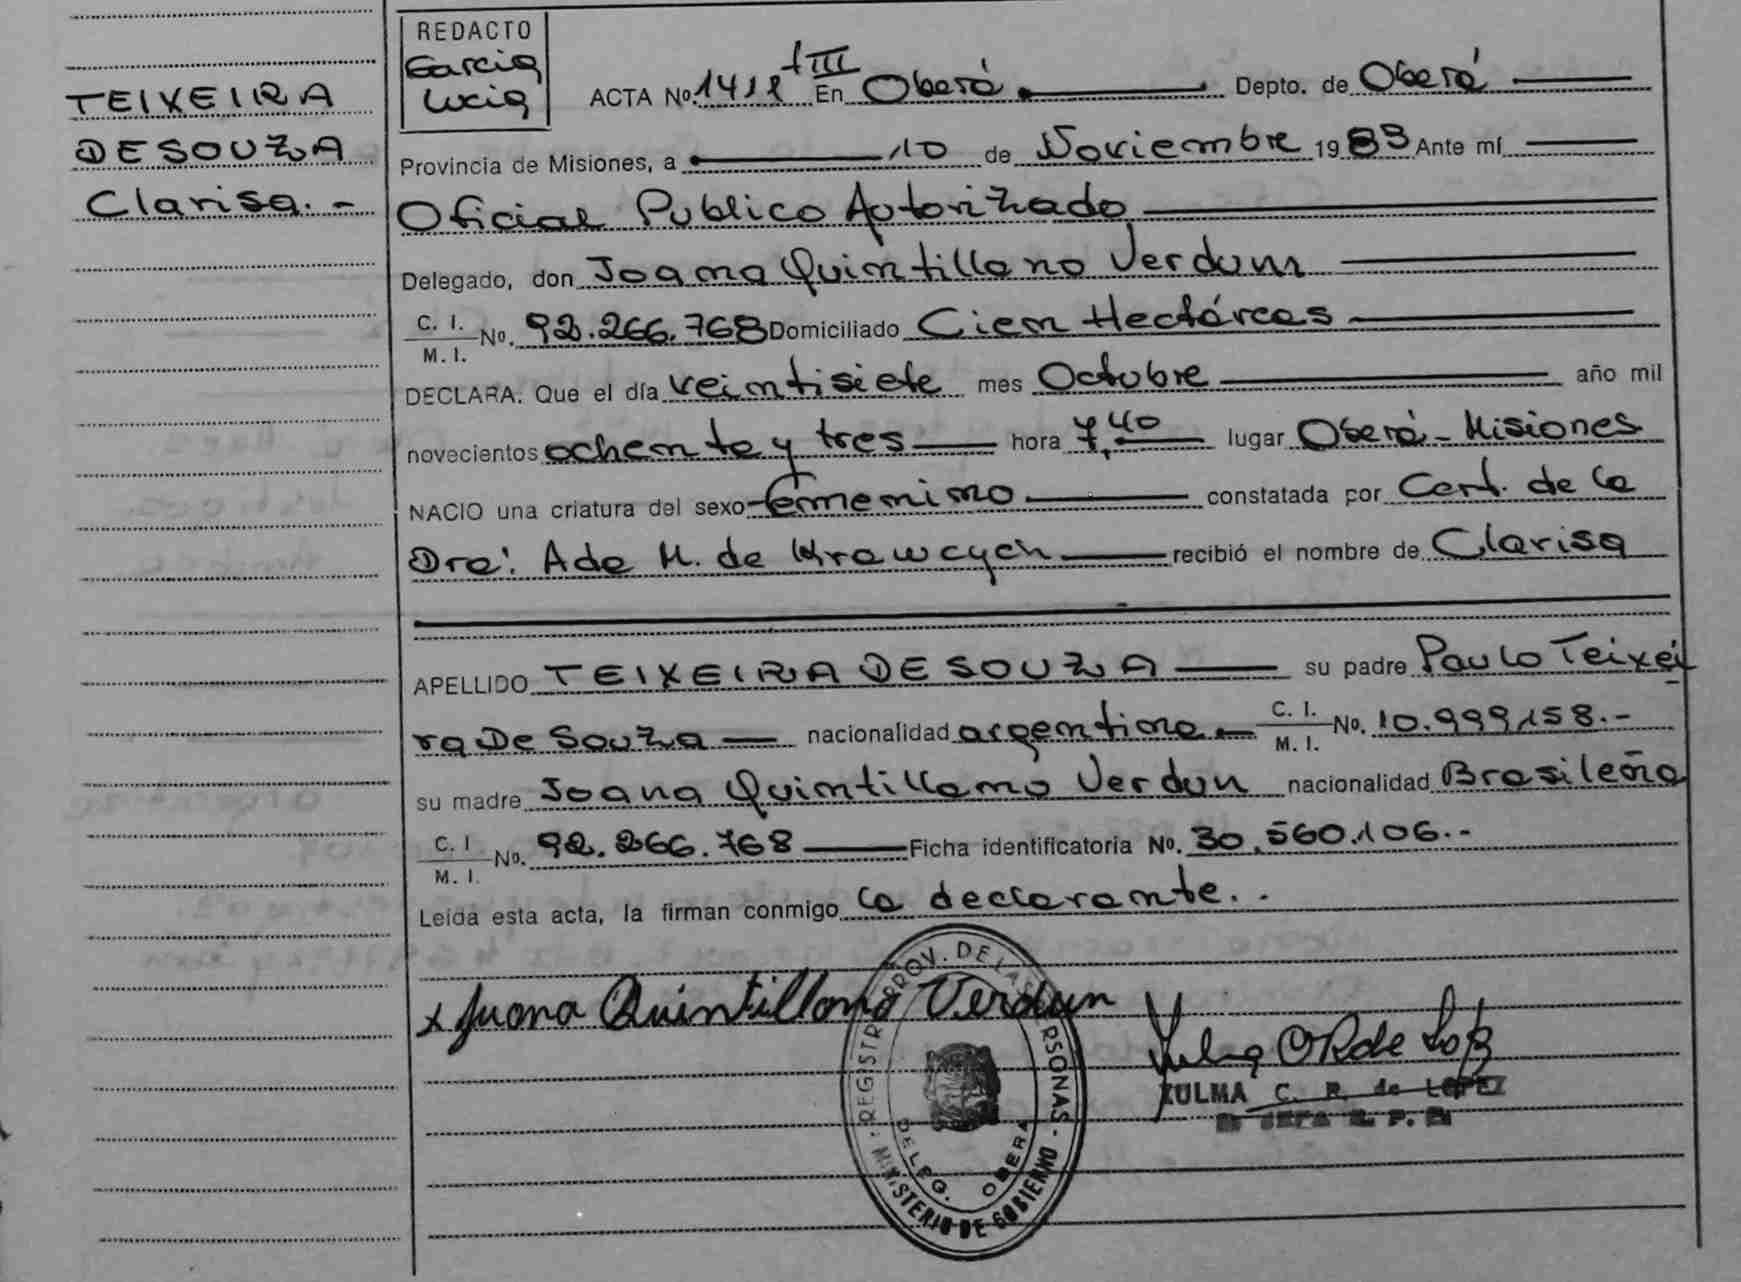 TEIXEIRA
DE SOUZA
Clarisa.-
REDACTO
Garcia
Lucia
ACTA No. 1412 tIII En Oberá Depto. de Oberá
Provincia de Misiones, a 10 de Noviembre 1983 Ante mí
Oficial Publico Autorizado
Delegado, don Joana Quintillano Verdum
C. I. M. I. No. 92.266.768 Domiciliado Cien Hectáreas
DECLARA: Que el día veintisiete mes Octubre año mil
novecientos ochenta y tres hora 7,40 lugar Oberá - Misiones
NACIO una criatura del sexo femenino constatada por Cert. de la
Dra: Ada M. de Krawcych recibió el nombre de Clarisa
APELLIDO TEIXEIRA DE SOUZA su padre Paulo Teixei
ra De Souza nacionalidad argentina C. I. M. I. No. 10.999.158.-
su madre Joana Quintillano Verdun nacionalidad Brasileña
C. I M. I. No. 92.266.768 Ficha identificatoria No. 30.560.106.-
Leída esta acta, la firman conmigo la declarante..
x Juana Quintillana Verdun
ZULMA C. R. de LOPEZ
REGISTR PROV. DE LAS RSONAS
DELEG. OBERA
MINISTERIO DE GOBIERNO